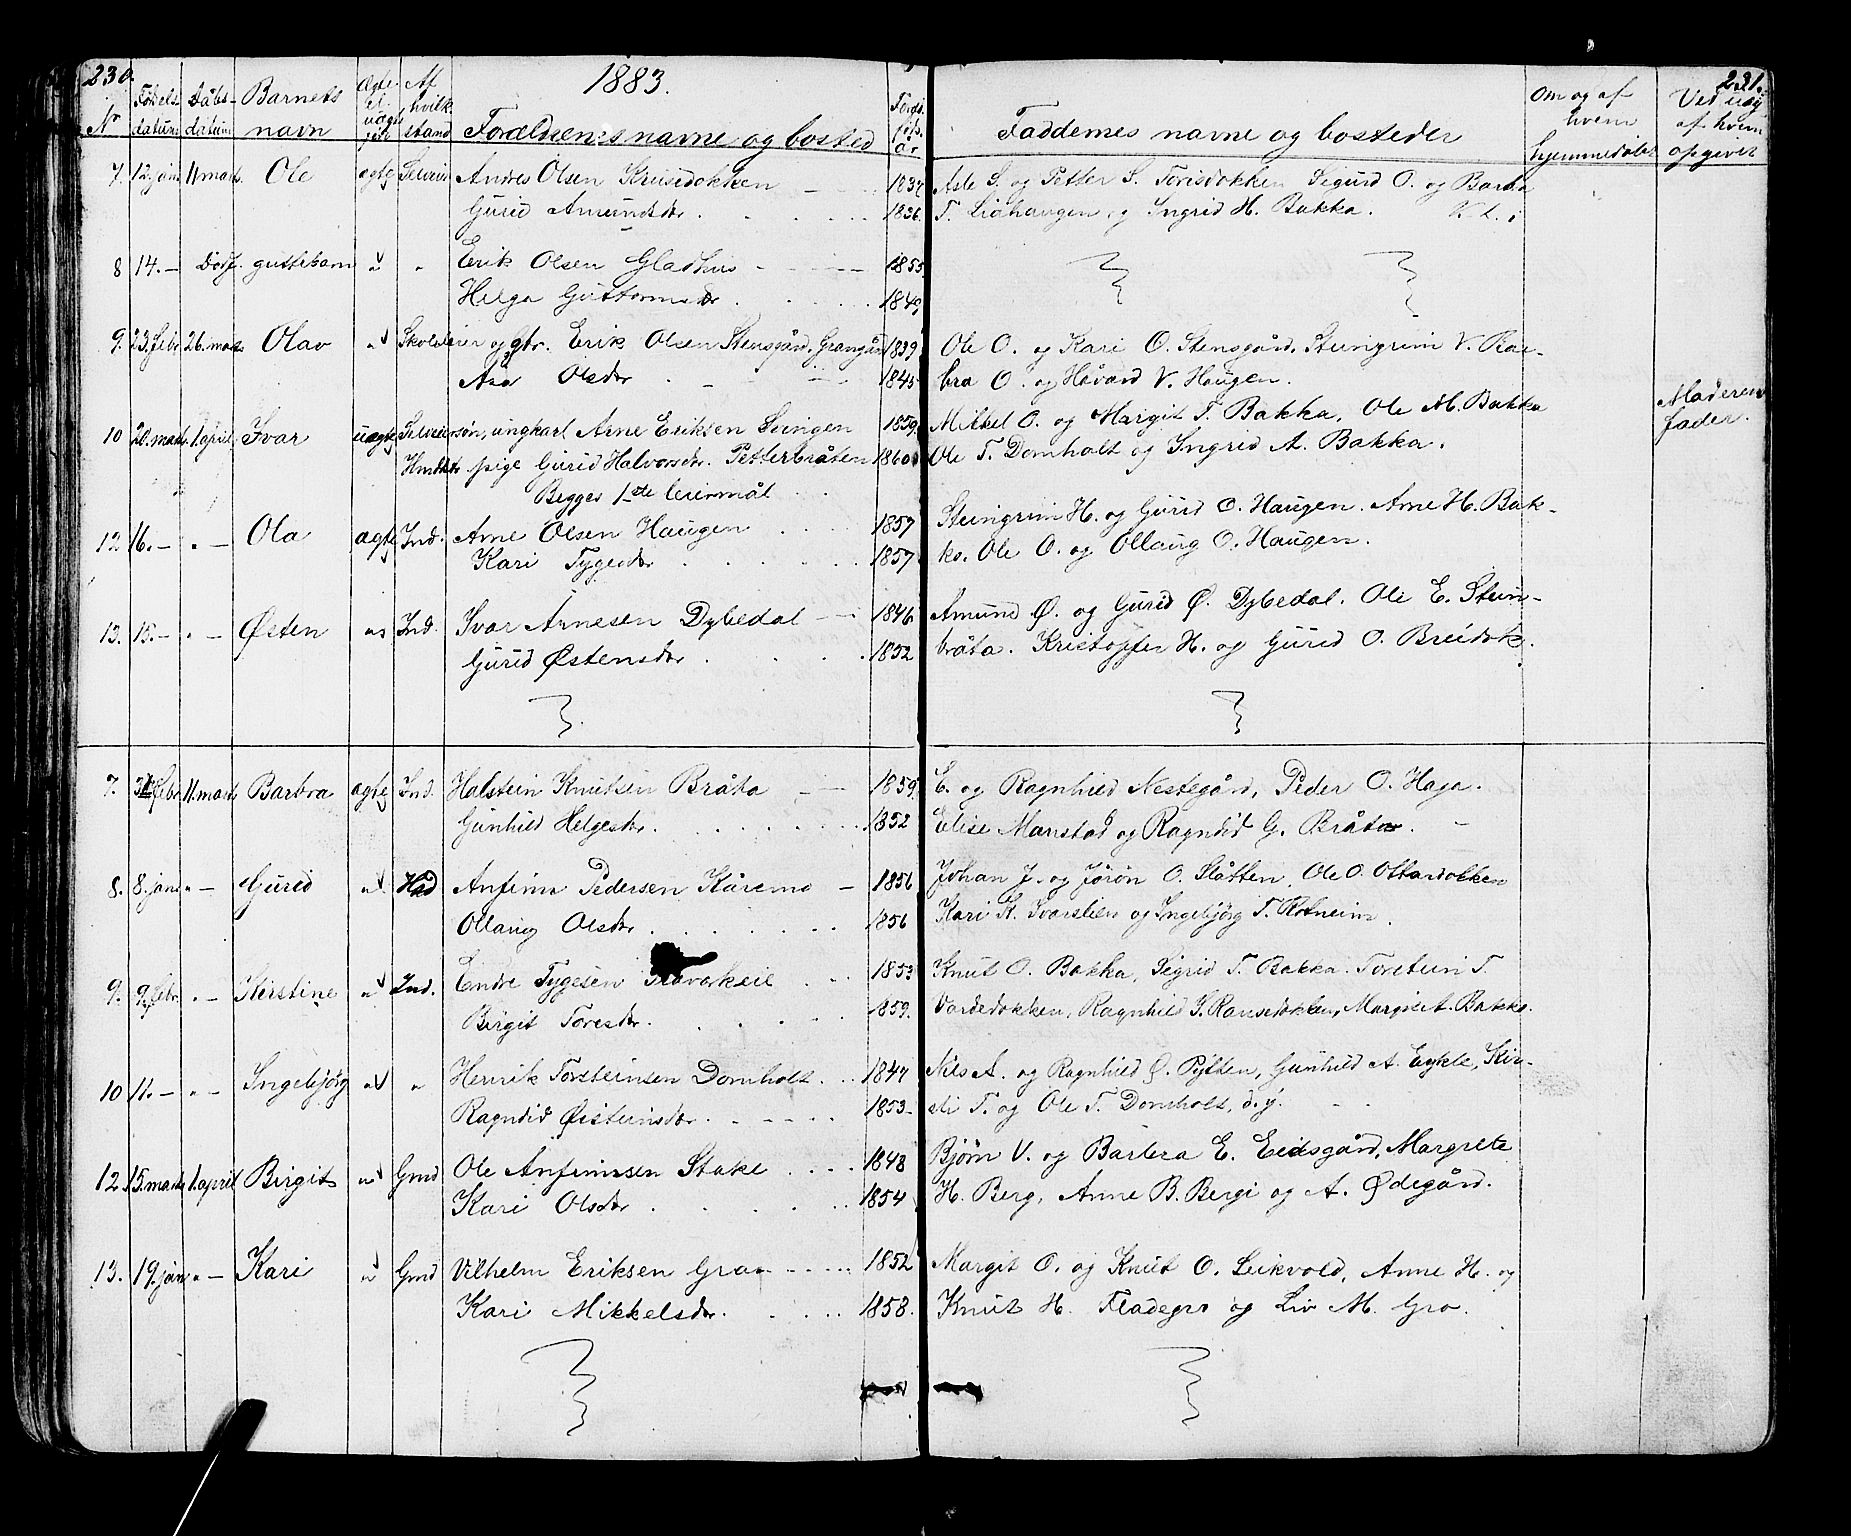 230.
1883.
231.
Nr
Fødels-
datum
Dåbs-
datum
Barnets
navn
Ægte
el.
uægte
Af
hvilk.
stand
Forældrenes navne og bosted
Foræl.
føds.
år
Faddernes navne og bosteder
Om og af
hvem
hjemmedøbt
Ved uæg
af hvem
opgivet
7. 12. jan. 11 marts. Ole ægte Selveier Andres Olsen 1834 Asle S. og Petter S. Torisdokken Sigurd O. og Barbra
Gurid Amundsdr. 1836. T. Lidhaugen og Ingrid H. Bakka.
8 14. — Dødf. guttebarn Erik Olsen Gladhus 1855.
Helga Guttormsdr. 1849
9. 23. febr. 26. marts Olav Skolelærer og gbr. Erik Olsen Stensgård, 1839 Ole O. og Kari O. Stensgård. Steingrim V. Bar-
Åse Olsdr. 1845 bra O. og Håvard V. Haugen.
10 20. marts 1. april Ivar uægte Selveiersøn, ungkarl Arne Eriksen Svingen 1859. Mikkel O. og Margit T. Bakka, Ole M. Bakka Moderens
pige Gurid Halvorsdr. Petterbråten 1860 Ole T. Domholt og Ingrid A. Bakka. fader.
Begges 1ste leiermål
12 16. — " — Ola ægte Ind. Arne Olsen Haugen 1857 Steingrim H. og Gurid O. Haugen. Arne H. Bak-
Kari Tygesdr 1857 ka. Ole O. og Ollaug O. Haugen.
13. 15. — " — Østen Ind. Ivar Arnesen Dybedal 1846 Amund Ø. og Gurid Ø. Dybedal. Ole E. Stein-
Gurid Østensdr. 1852 bråta. Kristopfer H. og Gurid O. Breidok.
7. febr. 11. marts Barbra ægte Ind. Halstein Knutsen Bråta 1859. E. og Ragnhild Nestegård, Peder O. Haga.
Gunhild Helgesdr. 1852 Elise Manstad og Ragndid G. Bråta.
8. 8. jan. " — Gurid Anfinn Pedersen Kåremo 1856 Johan J. og Jørøn O. Slåtten. Ole O. Ottardokken
Ollaug Olsdr. 1856 Kari K. Ivarslien og Ingebjørg T. Rotneim.
9. 9. febr. " — Kerstine Ind. Endre Tygesen 1853 Knut O. Bakka, Sigrid T. Bakka. Torstein T.
Birgit Toresdr. 1859. Vardedokken, Ragnhild S. Ransedokken, Margit A. Bakka.
10 11. — " — Ingebjørg " Henrik Torsteinsen Domholt. 1847 Nils A. og Ragnhild Ø. Pytten, Gunhild A. Eykle, Kir-
Ragndid Øisteinsdr. 1853 sti T. og Ole T. Domholt, d. y.
12. 15. marts 1. april Birgit Gmd Ole Anfinnssen Stake 1848 Bjørn V. og Barbra E. Eidsgård, Margrete
Kari Olsdr 1854 H. Berg, Anne B. Bergi og A. Ødegård.
13. 19. jan " — Kari Gmd Vilhelm Eriksen Gra 1852 Margit O. og Knut O. Leikvold, Anne H. og
Kari Mikkelsdr. 1858. Knut H. Fladegrs og Liv M. Gro.